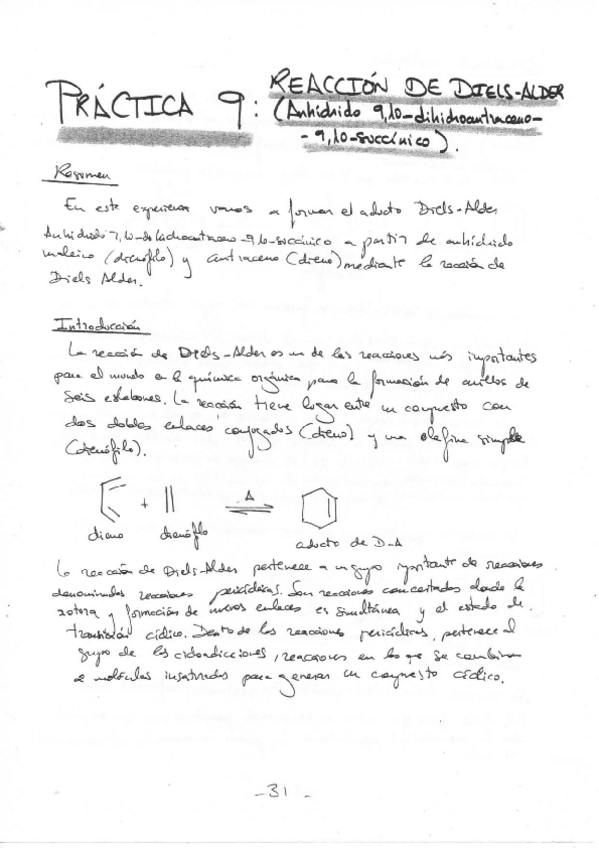 PRÁCTICA 9: REACCIÓN DE DIELS-ALDER
(Anhidrido 9,10-dihidroantraceno-
-9,10-succínico).
Resumen
En este experiencia vamos a formar el aducto Diels-Alder
Anhidrido 9,10-dihidroantraceno-9,10-succínico a partir de anhidrido
maleico (dienófilo) y antraceno (dieno) mediante la reacción de
Diels Alder.
Introducción
La reacción de Diels-Alder es una de las reacciones más importantes
para el mundo en la química orgánica para la formación de anillos de
seis eslabones. La reacción tiene lugar entre un compuesto con
dos dobles enlaces conjugados (dieno) y una olefina simple
(dienófilo).
+ Δ
dieno dienófilo aducto de D-A
La reacción de Diels-Alder pertenece a un grupo importante de reacciones
denominadas reacciones pericíclicas. Son reacciones concertadas donde la
rotura y formación de nuevos enlaces es simultánea y el estado de
transición cíclico. Dentro de las reacciones pericíclicas, pertenece al
grupo de las cicloadicciones, reacciones en las que se combinan
2 moléculas insaturadas para generar un compuesto cíclico.
-31-